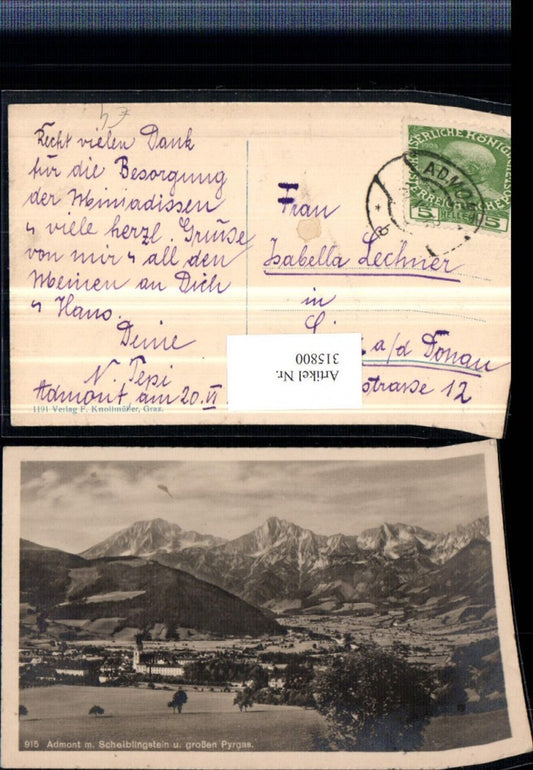 Recht vielen Dank
für die Besorgung
der Miniadissen
u viele herzl. Grüße
von mir u all den
Meinen an Dich
u Hans.
Deine
N. Tepi
Admont, am 20. VI
1191 Verlag F. Knollmüller, Graz.
Frau
Isabella Lechner
in
a/d Donau
strasse 12
ADMONT
5 HELLER 5
Artikel Nr.
315800
915 Admont m. Scheiblingstein u. großen Pyrgas.